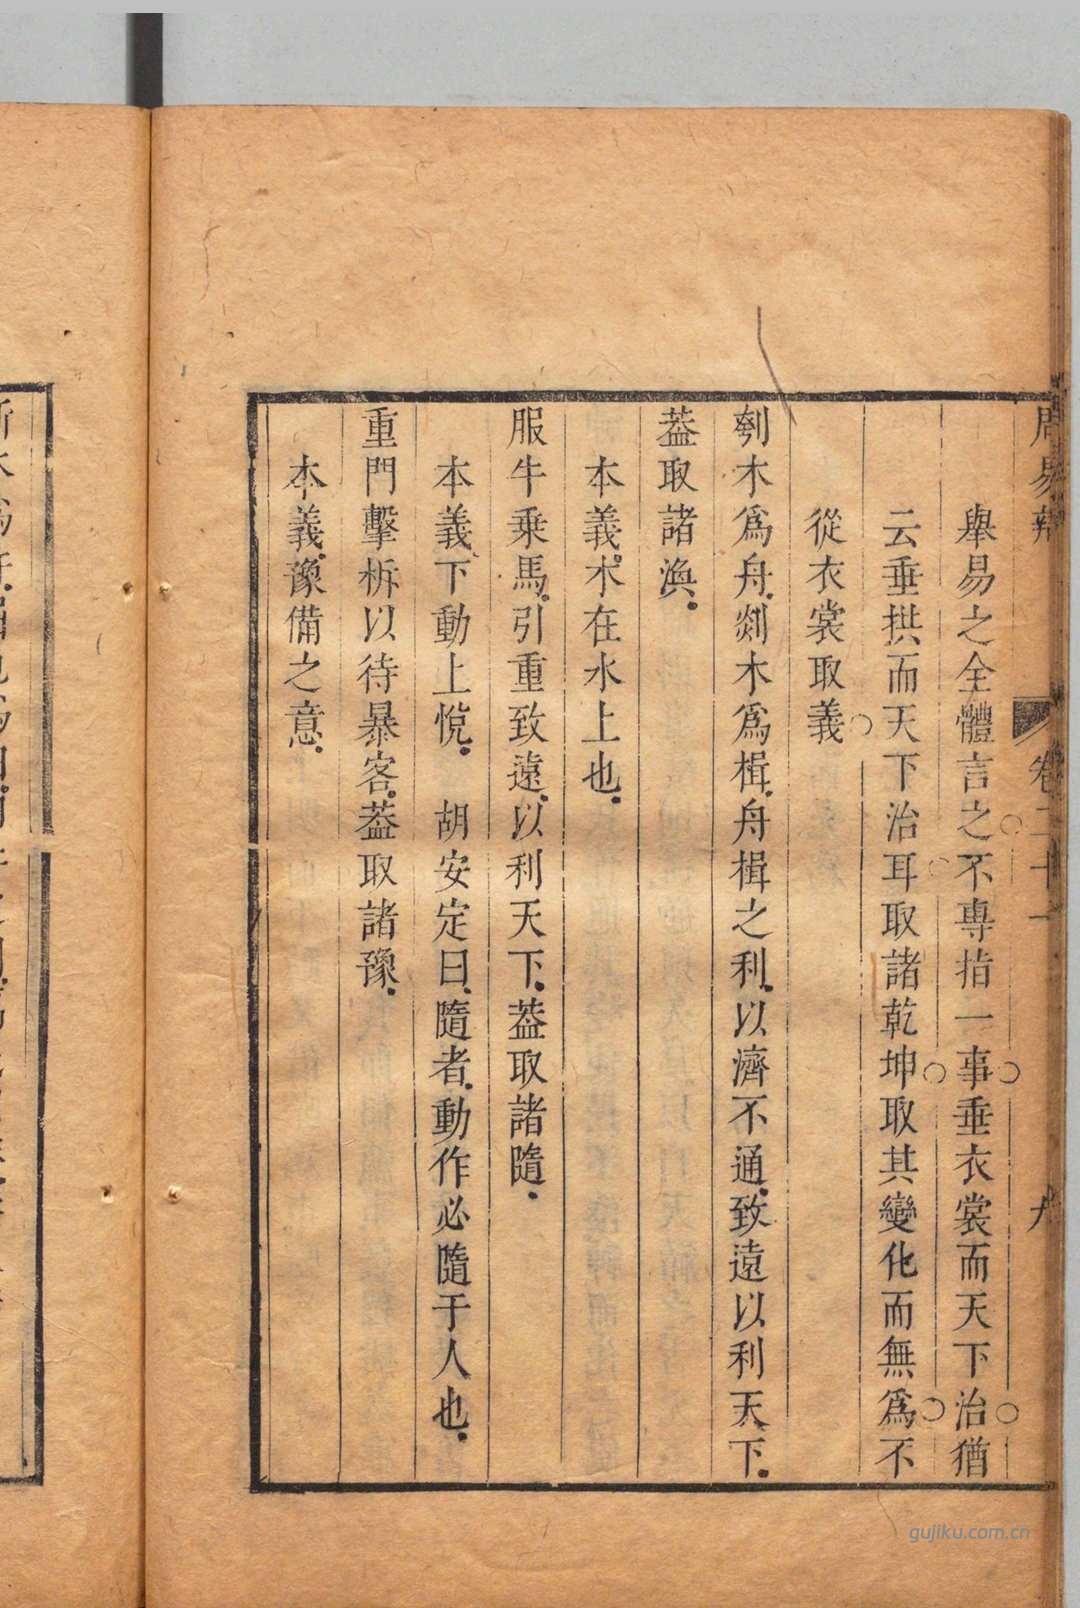 周易辨 卷二十一 九
舉易之全體言之不專指一事垂衣裳而天下治猶
云垂拱而天下治耳取諸乾坤取其變化而無爲不
從衣裳取義
刳木爲舟剡木爲楫舟楫之利以濟不通致遠以利天下
葢取諸渙
本義木在水上也
服牛乗馬引重致遠以利天下葢取諸隨
本義下動上悅 胡安定曰隨者動作必隨于人也
重門擊柝以待暴客葢取諸豫
本義豫備之意
gujiku.com.cn